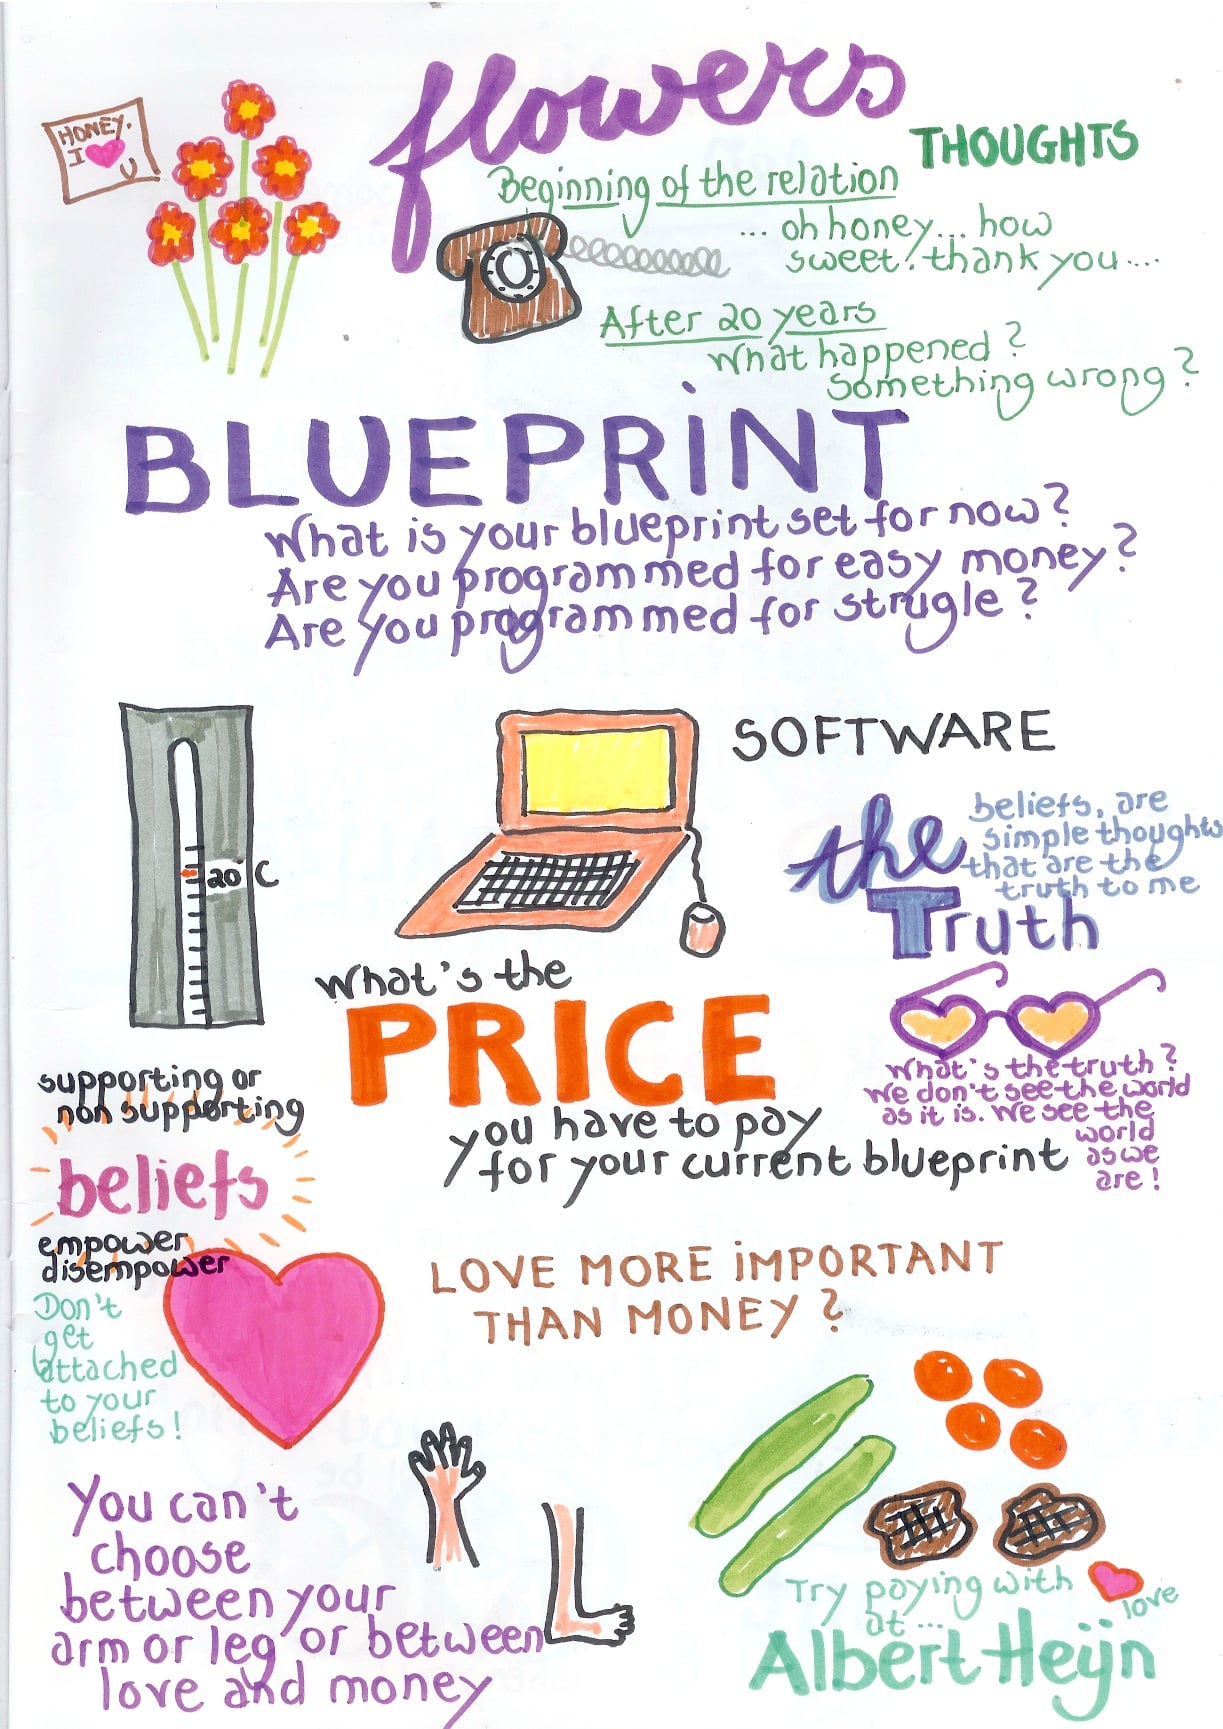 HONEY.
I U
flowers
THOUGHTS
Beginning of the relation
... oh honey... how
sweet! thank you....
After 20 years
What happened?
something wrong?
BLUEPRINT
What is your blueprint set for now?
Are you programmed for easy money?
Are you programmed for strugle?
20 C
SOFTWARE
the
Truth
beliefs, are
simple thoughts
that are the
truth to me
What's the
PRICE
you have to pay
for your current blueprint
What's the truth?
We don't see the world
as it is. We see the
world
as we
are!
supporting or
non supporting
beliefs
empower
disempower
Don't
get
attached
to your
beliefs!
LOVE MORE IMPORTANT
THAN MONEY?
You can't
choose
between your
arm or leg or between
love and money
Try paying with
love
at...
Albert Heijn